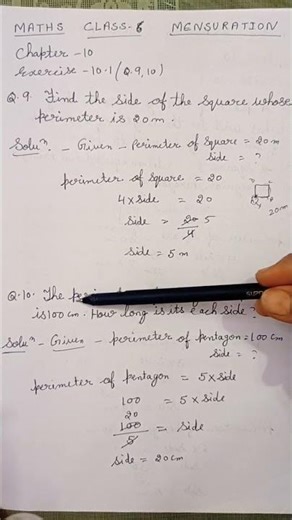 MATHS CLASS-6 MENSURATION
Chapter -10
Exercise -10.1 (Q.9,10)
Q.9. Find the side of the square whose
perimeter is 20m.
Soluⁿ. - Given - Perimeter of Square = 20m
Side = ?
perimeter of square = 20
4 x side = 20
side = 20 5
4
side = 5 m
20m
Q.10. The
is 100 cm. How long is its each side ?
Soluⁿ - Given - perimeter of pentagon = 100 cm
side = ?
perimeter of pentagon = 5 x side
100 = 5 x side
20
100 = side
5
side = 20cm